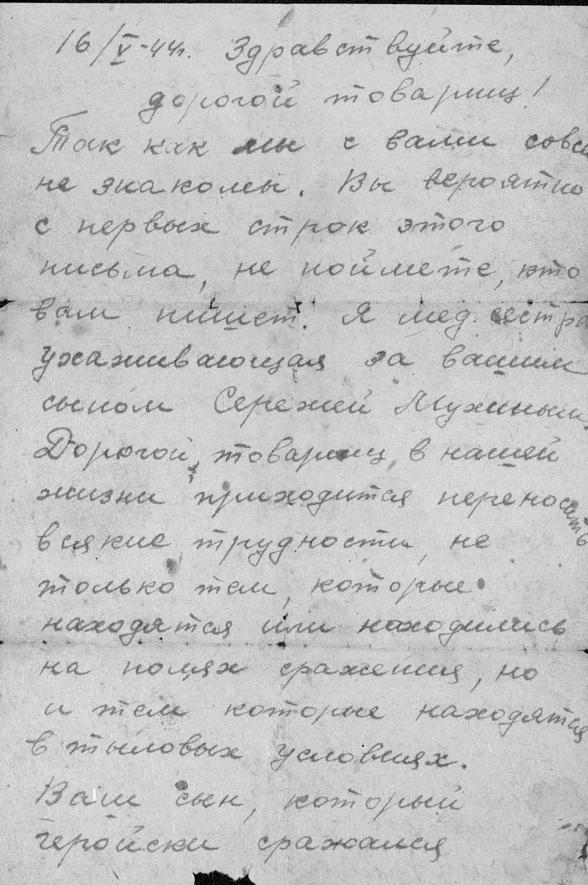 16/V-44г. Здравствуйте,
дорогой товарищ!
Так как мы с вами совсе
не знакомы. Вы вероятно
с первых строк этого
письма, не поймете, кто
вам пишет. Я мед. сестра
ухаживающая за вашим
сыном Сережей Мухиным.
Дорогой товарищ, в нашей
жизни приходится переносить
всякие трудности, не
только тем, которые
находятся или находились
на полях сражения, но
и тем которые находятся
в тыловых условиях.
Ваш сын, который
геройски сражался